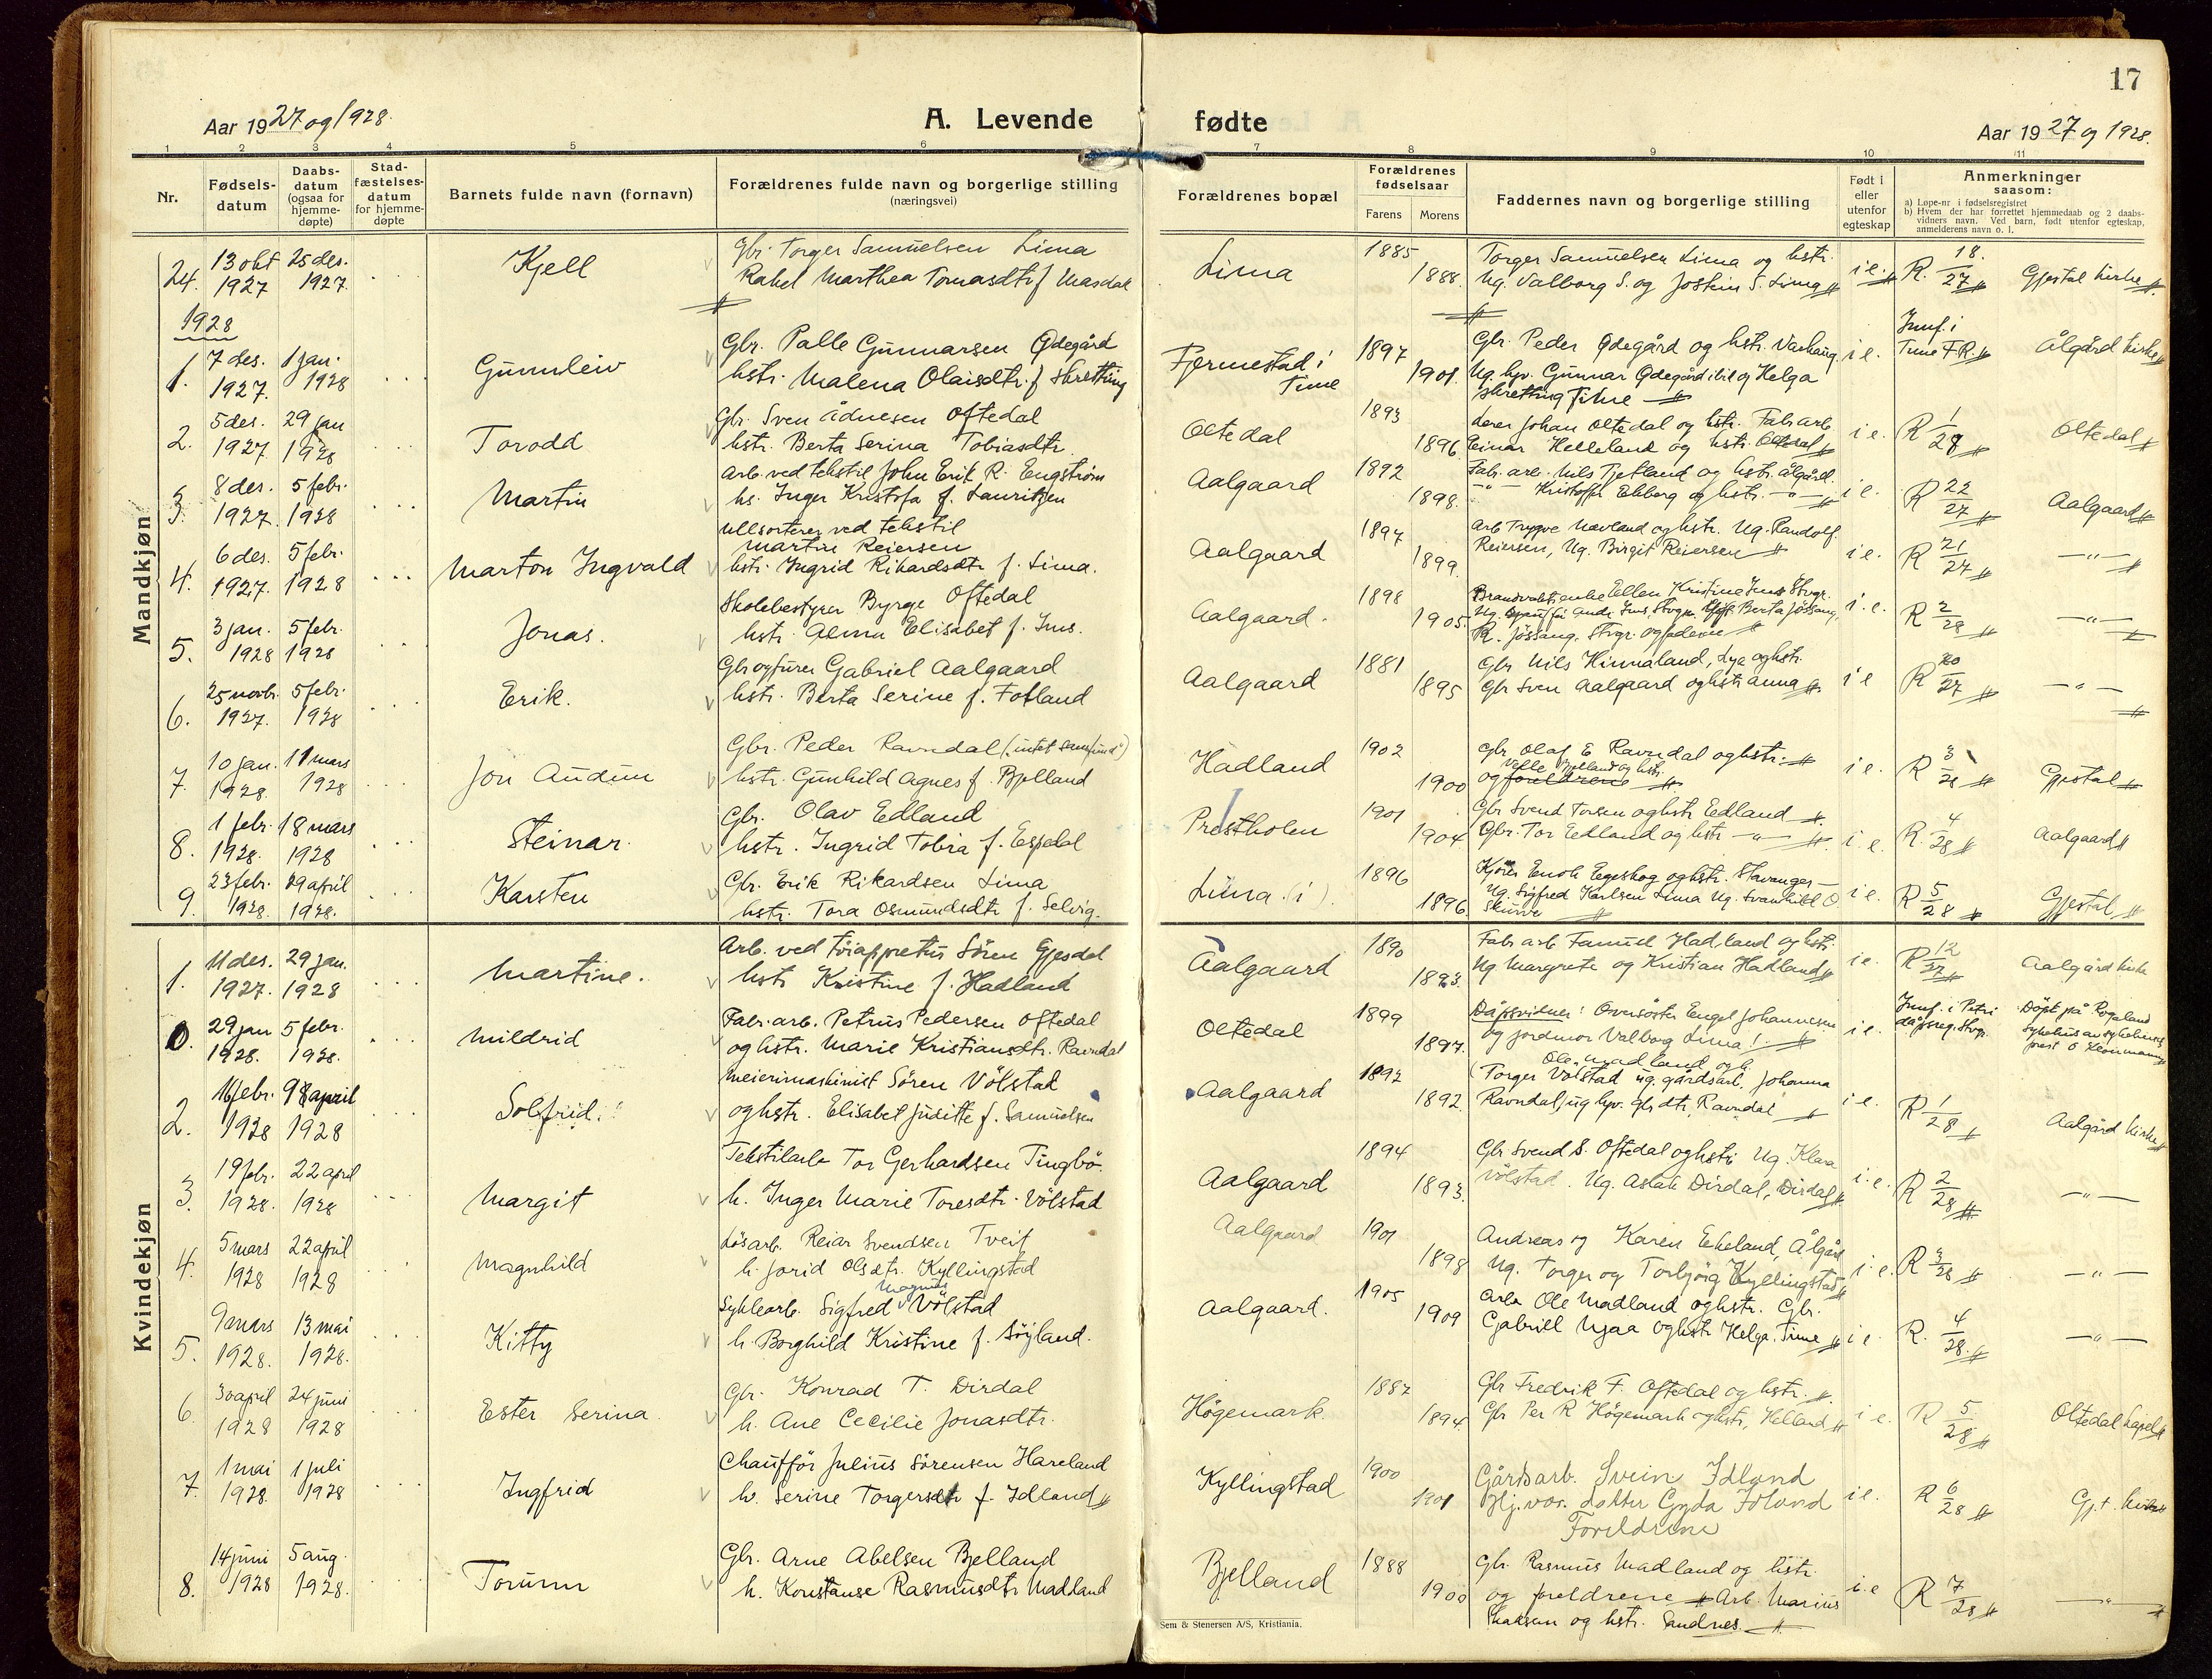 17
Aar 1927 og 1928.
A. Levende fødte
Aar 1927 og 1928.
1 2 3 4 5 6 7 8 9 10 11
Nr.
Fødsels-
datum
Daabs-
datum
(ogsaa for
hjemme-
døpte)
Stad-
fæstelses-
datum
for hjemme-
døpte
Barnets fulde navn (fornavn)
Forældrenes fulde navn og borgerlige stilling
(næringsvei)
Forældrenes bopæl
Forældrenes
fødselsaar
Farens Morens
Faddernes navn og borgerlige stilling
Født i
eller
utenfor
egteskap
Anmerkninger
saasom:
a) Løpe-nr i fødselsregistret
b) Hvem der har forrettet hjemmedaab og 2 daabs-
vidners navn. Ved barn, født utenfor egteskap,
anmelderens navn o. l.
Mandkjøn
24. 13 okt 1927 25 des. 1927. Kjell
Gbr. Torger Samuelsen Lima
Rakel Marthea Tomasdtr f Masdal
Lima 1885 1888.
Torger Samuelsen Lima og hstr.
Ug. Valborg S. og Jostein S. Lima
i e. R. 18. 27 Gjestal kirke
1928
1. 7 des. 1927. 1 jan. 1928 Gunnleiv
Gbr. Palle Gunnarsen Ødegård
hstr. Malena Olaisdtr. f Skretting
Fjermestad i
Time
1897 1901.
Gbr. Peder Ødegård og hstr. Varhaug.
Ug. hjv. Gunnar Ødegård ibid og Helga
Skretting Time
i e. Innf. i
Time F.R. Ålgård kirke
2. 5 des. 1927. 29 jan 1928 Torodd
Gbr. Sven Ådnesen Oftedal
hstr. Berta Serina Tobiasdtr.
Oltedal 1893 1896.
Lærer Johan Oltedal og hstr. Fab. arb
Einar Helleland og hstr. Oltedal
i e. R 1 28 Oltedal
3. 8 des. 1927. 5 febr. 1928 Martin
Arb. ved tekstil John Erik R. Engstrøm
hs. Inger Kristofa f. Lauritzen
Aalgaard 1892 1898.
Fab. arb. Nils Tjetland og hstr. Ålgård.
- " - Kristoffer Ekberg og hstr. - " -
i e. R 22 27 Aalgaard
4. 6 des. 1927. 5 febr. 1928 Marton Ingvald
Ullsorterer ved tekstil
Martin Reiersen
hstr. Ingrid Rikardsdtr f. Lima.
Aalgaard 1897 1899.
Arb Trygve Nævland og hstr. Ug. Randolf
Reiersen, Ug. Birgit Reiersen
i e. R 21 27 - " -
5. 3 jan. 1928 5 febr. 1928 Jonas.
Skolebestyrer Byrge Oftedal
hstr. Alma Elisabet f. Ims.
Aalgaard. 1898 1905.
Ellen Kristine Ims Stvgr.
Berta Jøssang,
R. Jøssang. Stvgr. og faderen
i. e. R 2 28 - " -
6. 25 novbr. 1927. 5 febr. 1928 Erik.
Gbr og furer Gabriel Aalgaard
hstr. Berta Serine f. Fotland
Aalgaard 1881 1895
Gbr Nils Hinnaland, Lya og hstr.
Gbr Sven Aalgaard og hstr Anna
i e R 20 27 - " -
7. 10 jan. 1928. 11 mars 1928 Jon Audun
Gbr. Peder Ravndal ("intet samfund")
hstr. Gunhild Agnes f. Bjelland
Hadland 1902 1900
Gbr. Olaf E Ravndal og hstr.
Velle Bjelland og hstr.
og foreldrene
i e. R 3 28 Gjestal
8. 1 febr. 1928. 18 mars 1928 Steinar.
Gbr. Olav Edland
hstr. Ingrid Tobia f. Espedal
Prestholen 1901 1904
Gbr Svend Torsen og hstr Edland
Gbr. Tor Edland og hstr - " -
i. e. R. 4 28 Aalgaard
9. 23 febr. 1928. 29 april 1928. Karsten
Gbr. Erik Rikardsen Lima
hstr. Tora Osmundsdtr f. Selvig.
Lima (i). 1896 1896.
Kjører Enok Egeskog og hstr. Stavanger -
Ug. Sigfred Karlsen Lima Ug. Svanhild O.
Skurve
i e. R 5 28 Gjestal
Kvindekjøn
1. 11 des. 1927. 29 jan. 1928 Martine.
Arb. ved tøiappretur Sören Gjesdal
hstr Kristine f. Hadland
Aalgaard 1890 1893.
Fabr arb Samuel Hadland og hstr.
Ug Margrete og Kristian Hadland
i e. R 12 27 Aalgård kirke
0. 29 jan 1928. 5 febr. 1928. Mildrid
Fabr. arb. Petrus Pedersen Oftedal
og hstr. Marie Kristiansdtr. Ravndal
Oltedal 1899 1897.
Dåpsvidner: Oversøster Engel Johannesen
og jordmor Valborg Lima!
i e. Innf. i Petri
dåpsreg. Stvgr. Döpt på Rogaland
sykehus av sykehus
prest
2. 16 febr. 1928 9 april 1928 Solfrid.
Meierimaskinist Sören Völstad
og hstr. Elisabet Juditte f. Samuelsen
Aalgaard 1892 1892.
Ole Madland og h
(Torger Völstad ug. gårdsarb. Johanna
Ravndal, ug hjv. gbr dtr, Ravndal
i e. R 1 28 Aalgård kirke
3. 19 febr. 1928. 22 april 1928 Margit
Tekstilarb Tor Gerhardsen Tingbö.
h. Inger Marie Toresdtr. Völstad
Aalgaard 1894 1893.
Gbr Svend S. Oftedal og hstr. Ug. Klara
Völstad. Ug. Aslak Dirdal, Dirdal
i. e. R 2 28 - " -
4. 5 mars 1928 22 april 1928 Magnhild
Løsarb. Reiar Svendsen Tveit
h. Jorid Olsdtr. Kyllingstad
Aalgaard 1901 1898
Andreas og Karen Ekeland, Ålgård
Ug. Torger og Torbjörg Kyllingstad
i e. R 3 28 - " -
5. 9 mars 1928. 13 mai 1928. Kitty
Syklearb. Sigfred Magnus Völstad
h. Borghild Kristine f. Söyland.
Aalgaard. 1905 1909
Arb Ole Madland og hstr. Gbr.
Gabriel Njaa og hstr Helga. Time
i e. R. 4 28. - " -
6. 30 april 1928 24 juni 1928 Ester Serina.
Gbr. Konrad T. Dirdal
h. Ane Cecilie Jonasdtr.
Högemark. 1887 1894.
Gbr Fredrik F. Oftedal og hstr.
Gbr Per R Högemark og hstr, Helland
i e. R 5 28 Oltedal kapel
7. 1 mai 1928. 1 juli 1928 Ingfrid
Chauffør Julius Sörensen Hareland
h. Serine Torgersdtr f. Idland
Kyllingstad 1900 1901
Gårdsarb. Svein Idland
Hj. vær. datter Gyda Idland
Foreldrene
i e. R 6 28 Gj. t. kirke
8. 14 juni 1928 5 aug. 1928. Torunn
Gbr. Arne Abelsen Bjelland
h. Konstanse Rasmusdtr Madland
Bjelland 1888 1900
Gbr. Rasmus Madland og hstr.
og foreldrene Arb. Marius
og hstr. Sandnes.
i. e R 7 28 - " -
Sem & Stenersen A/S, Kristiania.